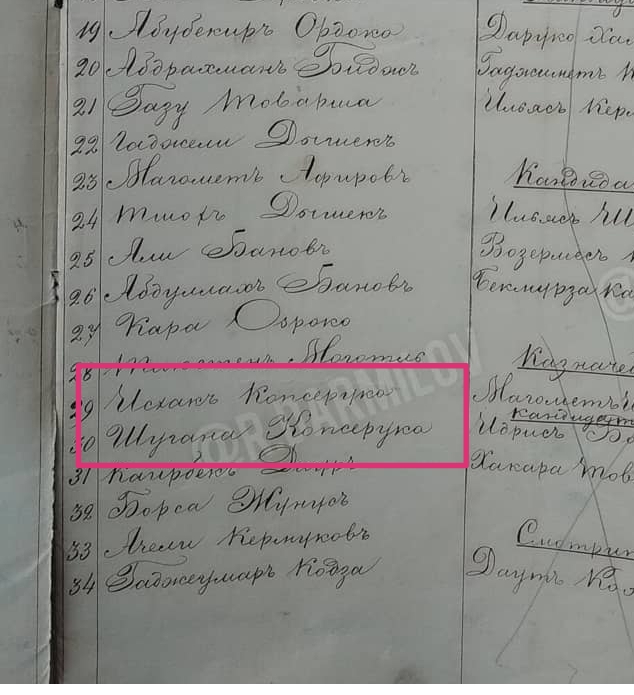 19 Абубекиръ Ордоко
20 Абдрахманъ Биджъ
21 Газу Товарша
22 Гаджели Дышекъ
23 Магометъ Афировъ
24 Тшохъ Дышекъ
25 Али Бановъ
26 Абдуллахъ Бановъ
27 Кара Озроко
28
29 Исхакъ Копсеруко
30 Шугана Копсеруко
31 Каирбекъ Дауръ
32 Борса Жунусъ
33 Ачели Кермуковъ
34 Гаджеумаръ Кодза
Даруко Хал
Гаджиметъ
Ильясъ Керм
Кандида
Ильясъ Ш
Возермесъ
Бекмурза Ка
Казначе
Магометъ
кандидат
Идрисъ Бо
Хакара Тов
Смотрит
Даутъ Ко